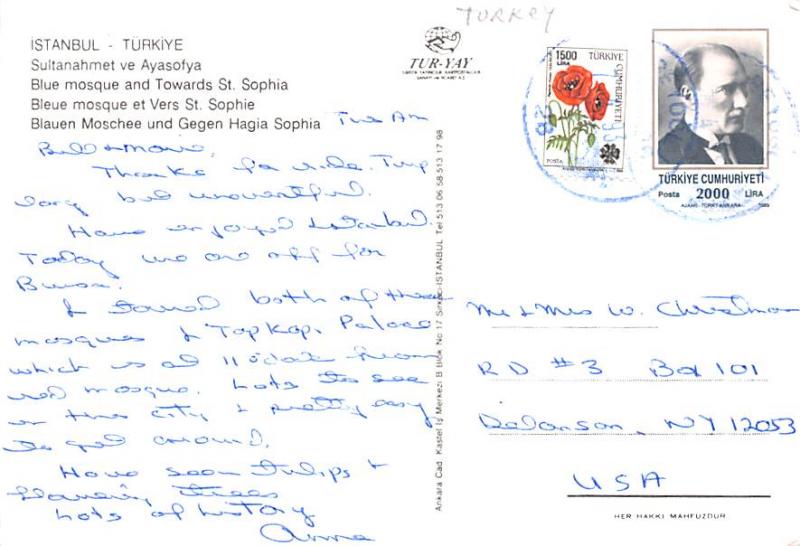 TURKEY
İSTANBUL - TÜRKİYE
Sultanahmet ve Ayasofya
Blue mosque and Towards St. Sophia
Bleue mosque et Vers St. Sophie
Blauen Moschee und Gegen Hagia Sophia
Tues Am
Bill &
Thanks for ride. Trip
long but uneventful.
Have enjoyed Istanbul.
Today we are off for
Bursa.
I toured both of these
mosques & Topkapi Palace
which is at 11 o'clock from
red mosque. Lots to see
in the city & pretty easy
to get around.
Have seen tulips &
flowering trees
Lots of history
Anne
TUR-YAY
Ankara Cad. Kastel İş Merkezi B Blok No 17 Sirkeci-İSTANBUL Tel 513 06 58-513 17 98
1500
LİRA
TÜRKİYE
CUMHURİYETİ
POSTA
TÜRKİYE CUMHURİYETİ
Posta 2000 LİRA
AJANS-TÜRK/ANKARA 1989
Mr & Mrs W. Christman
RD #3 Box 101
Delanson, NY 12053
USA
HER HAKKI MAHFUZDUR